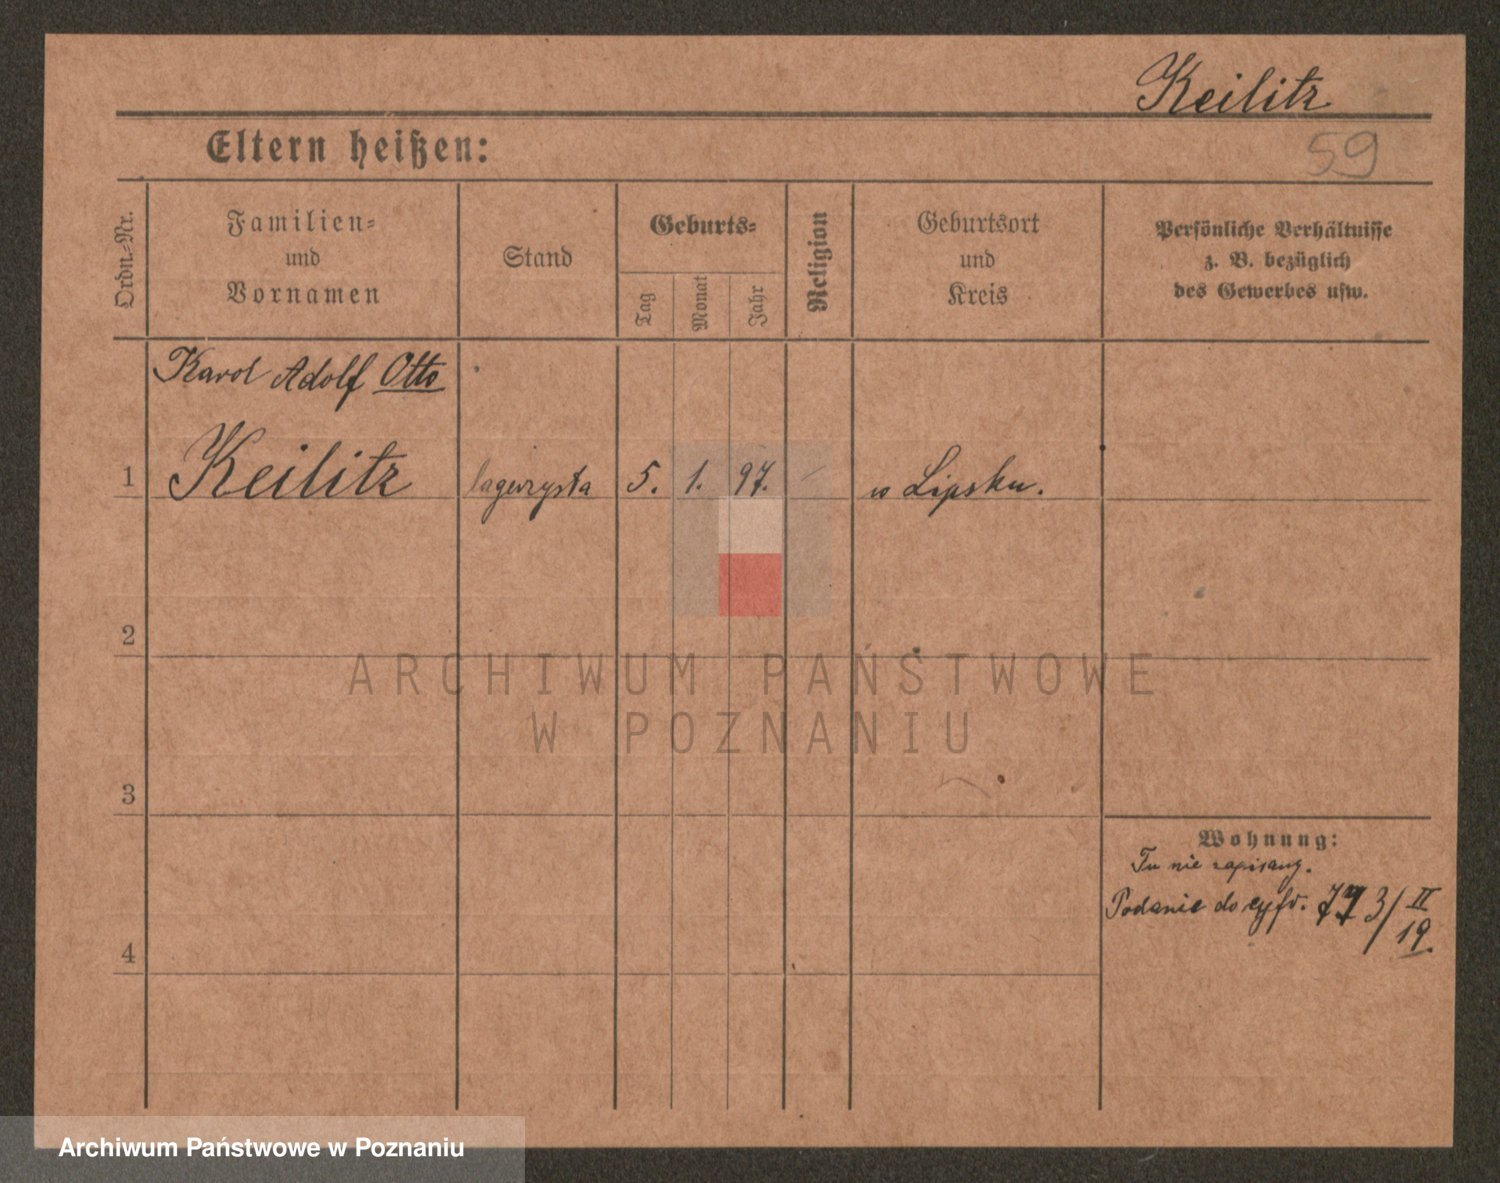 Keilitz
Eltern heißen:
59
Ordn.-Nr.
Familien-
und
Vornamen
Stand
Geburts-
Tag
Monat
Jahr
Religion
Geburtsort
und
Kreis
Persönliche Verhältnisse
z. B. bezüglich
des Gewerbes usw.
Karol Adolf Otto
1 Keilitz lagerzysta 5. 1. 97. / w Lipsku.
2
ARCHIWUM PAŃSTWOWE
W POZNANIU
3
Wohnung:
Tu nie zapisany.
Podanie do cyfr. 773/II
19.
4
Archiwum Państwowe w Poznaniu